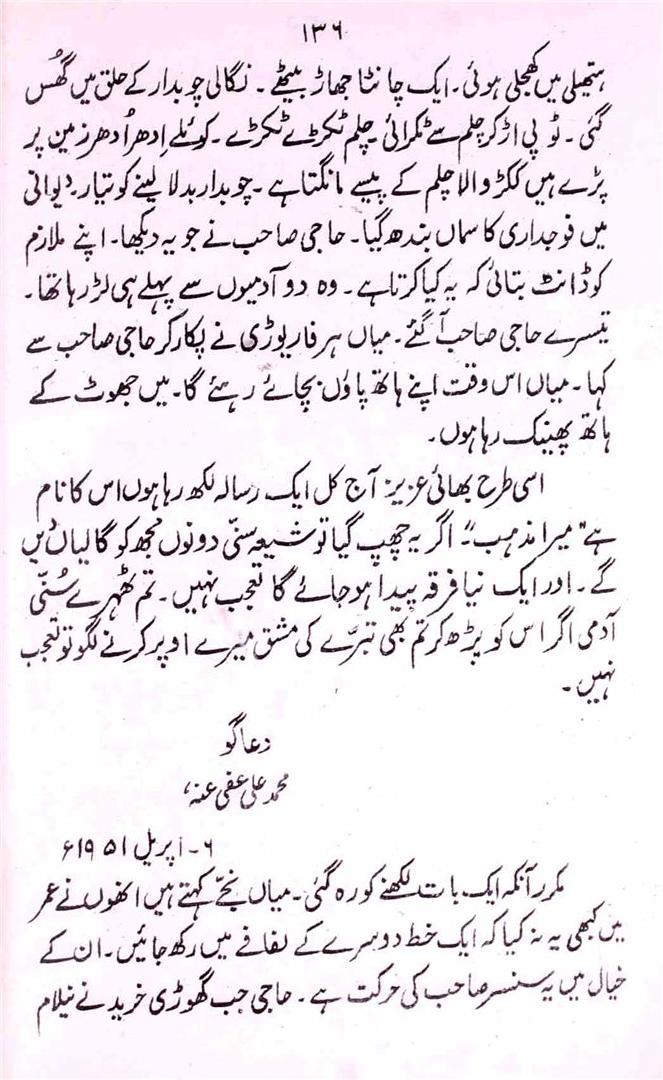 ۱۳۶
ہتھیلی میں کھجلی ہوئی۔ ایک چانٹا جھاڑ بیٹھے۔ نگالی چوبدار کے حلق میں گھُس
گئی۔ ٹوپی اڑ کر چلم سے ٹکرائی۔ چلم ٹکڑے ٹکڑے۔ کوئلے اِدھر اُدھر زمین پر
پڑے ہیں ککڑ والا چلم کے پیسے مانگتا ہے۔ چوبدار بدلا لینے کو تیار۔ دیوانی
میں فوجداری کا سماں بندھ گیا۔ حاجی صاحب نے جو یہ دیکھا۔ اپنے ملازم
کو ڈانٹ بتائی کہ یہ کیا کرتا ہے۔ وہ دو آدمیوں سے پہلے ہی لڑ رہا تھا۔
تیسرے حاجی صاحب آ گئے۔ میاں ہر فارپوڑی نے پکار کر حاجی صاحب سے
کہا۔ میاں اس وقت اپنے ہاتھ پاؤں بچائے رہئے گا۔ میں جھوٹ کے
ہاتھ پھینک رہا ہوں۔
اسی طرح بھائی عزیز آج کل ایک رسالہ لکھ رہا ہوں اس کا نام
ہے "میرا مذہب"۔ اگر یہ چھپ گیا تو شیعہ سنّی دونوں مجھ کو گالیاں دیں
گے۔ اور ایک نیا فرقہ پیدا ہو جائے گا تعجب نہیں۔ تم ٹھہرے سُنّی
آدمی اگر اس کو پڑھ کر تم بھی تبرّے کی مشق میرے اوپر کرنے لگو تو تعجب
نہیں۔
دعاگو
محمد علی عفی عنہ،
۶۔ اپریل ۱۹۵۱ء
مکرر آنکہ ایک بات لکھنے کو رہ گئی۔ میاں نجّے کہتے ہیں انھوں نے عمر
میں کبھی یہ نہ کیا کہ ایک خط دوسرے کے لفافے میں رکھ جائیں۔ ان کے
خیال میں یہ سنسر صاحب کی حرکت ہے۔ حاجی جب گھوڑی خریدنے نیلام